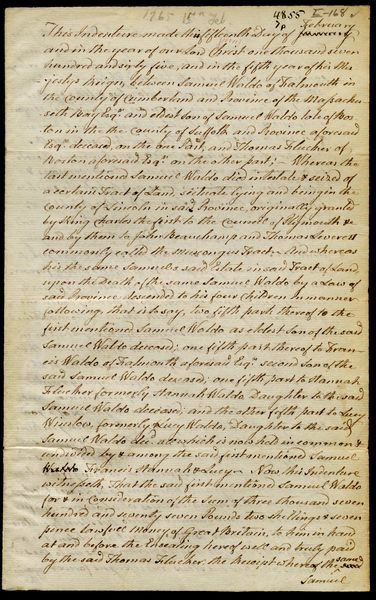 1765 15th Feb.
4855
7p
E-168
February
This Indenture made this fifteenth Day of
and in the year of our Lord Christ one thousand seven
hundred and sixty five, and in the fifth year of his Ma
jestys Reign, between Samuel Waldo of Falmouth in
the County of Cumberland and Province of the Massachu
setts Bay Esqr. and eldest son of Samuel Waldo late of Bos
ton in the the County of Suffolk and Province aforesaid
Esqr. deceased, on the one Part, and Thomas Flucker of
Boston aforesaid Esqr. on the other part; Whereas the
last mentioned Samuel Waldo died intestate & seized of
a certain Tract of Land, scituate lying and being in the
County of Lincoln in said Province, originally granted
by King Charles the first to the Council of Plymouth &
and by them to John Beauchamp and Thomas Leverett
commonly called the Muscongus Tract: And whereas
his the same Samuel's said Estate in said Tract of Land
upon the Death of the same Samuel Waldo by a Law of
said Province descended to his four Children in manner
following, that is to say, two fifth parts thereof to the
first mentioned Samuel Waldo as eldest Son of the said
Samuel Waldo deceased; one fifth part thereof to Fran
cis Waldo of Falmouth aforesaid Esqr. second Son of the
said Samuel Waldo deceased; one fifth part to Hannah
Flucker formerly Hannah Waldo Daughter to the said
Samuel Waldo deceased; and the other fifth part to Lucy
Winslow, formerly Lucy Waldo, Daughter to the said
Samuel Waldo decd. all which is now held in common &
undivided by & among the said first mentioned Samuel
Waldo Francis Hannah & Lucy. Now this Indenture
witnesseth, That the said first mentioned Samuel Waldo
for & in consideration of the Sum of three thousand seven
hundred and seventy seven Pounds two shillings & seven
pence lawfull Money of Great Britain, to him in hand
at and before the Ensealing hereof well and truly paid
by the said Thomas Flucker, the Receipt whereof the same
Samuel